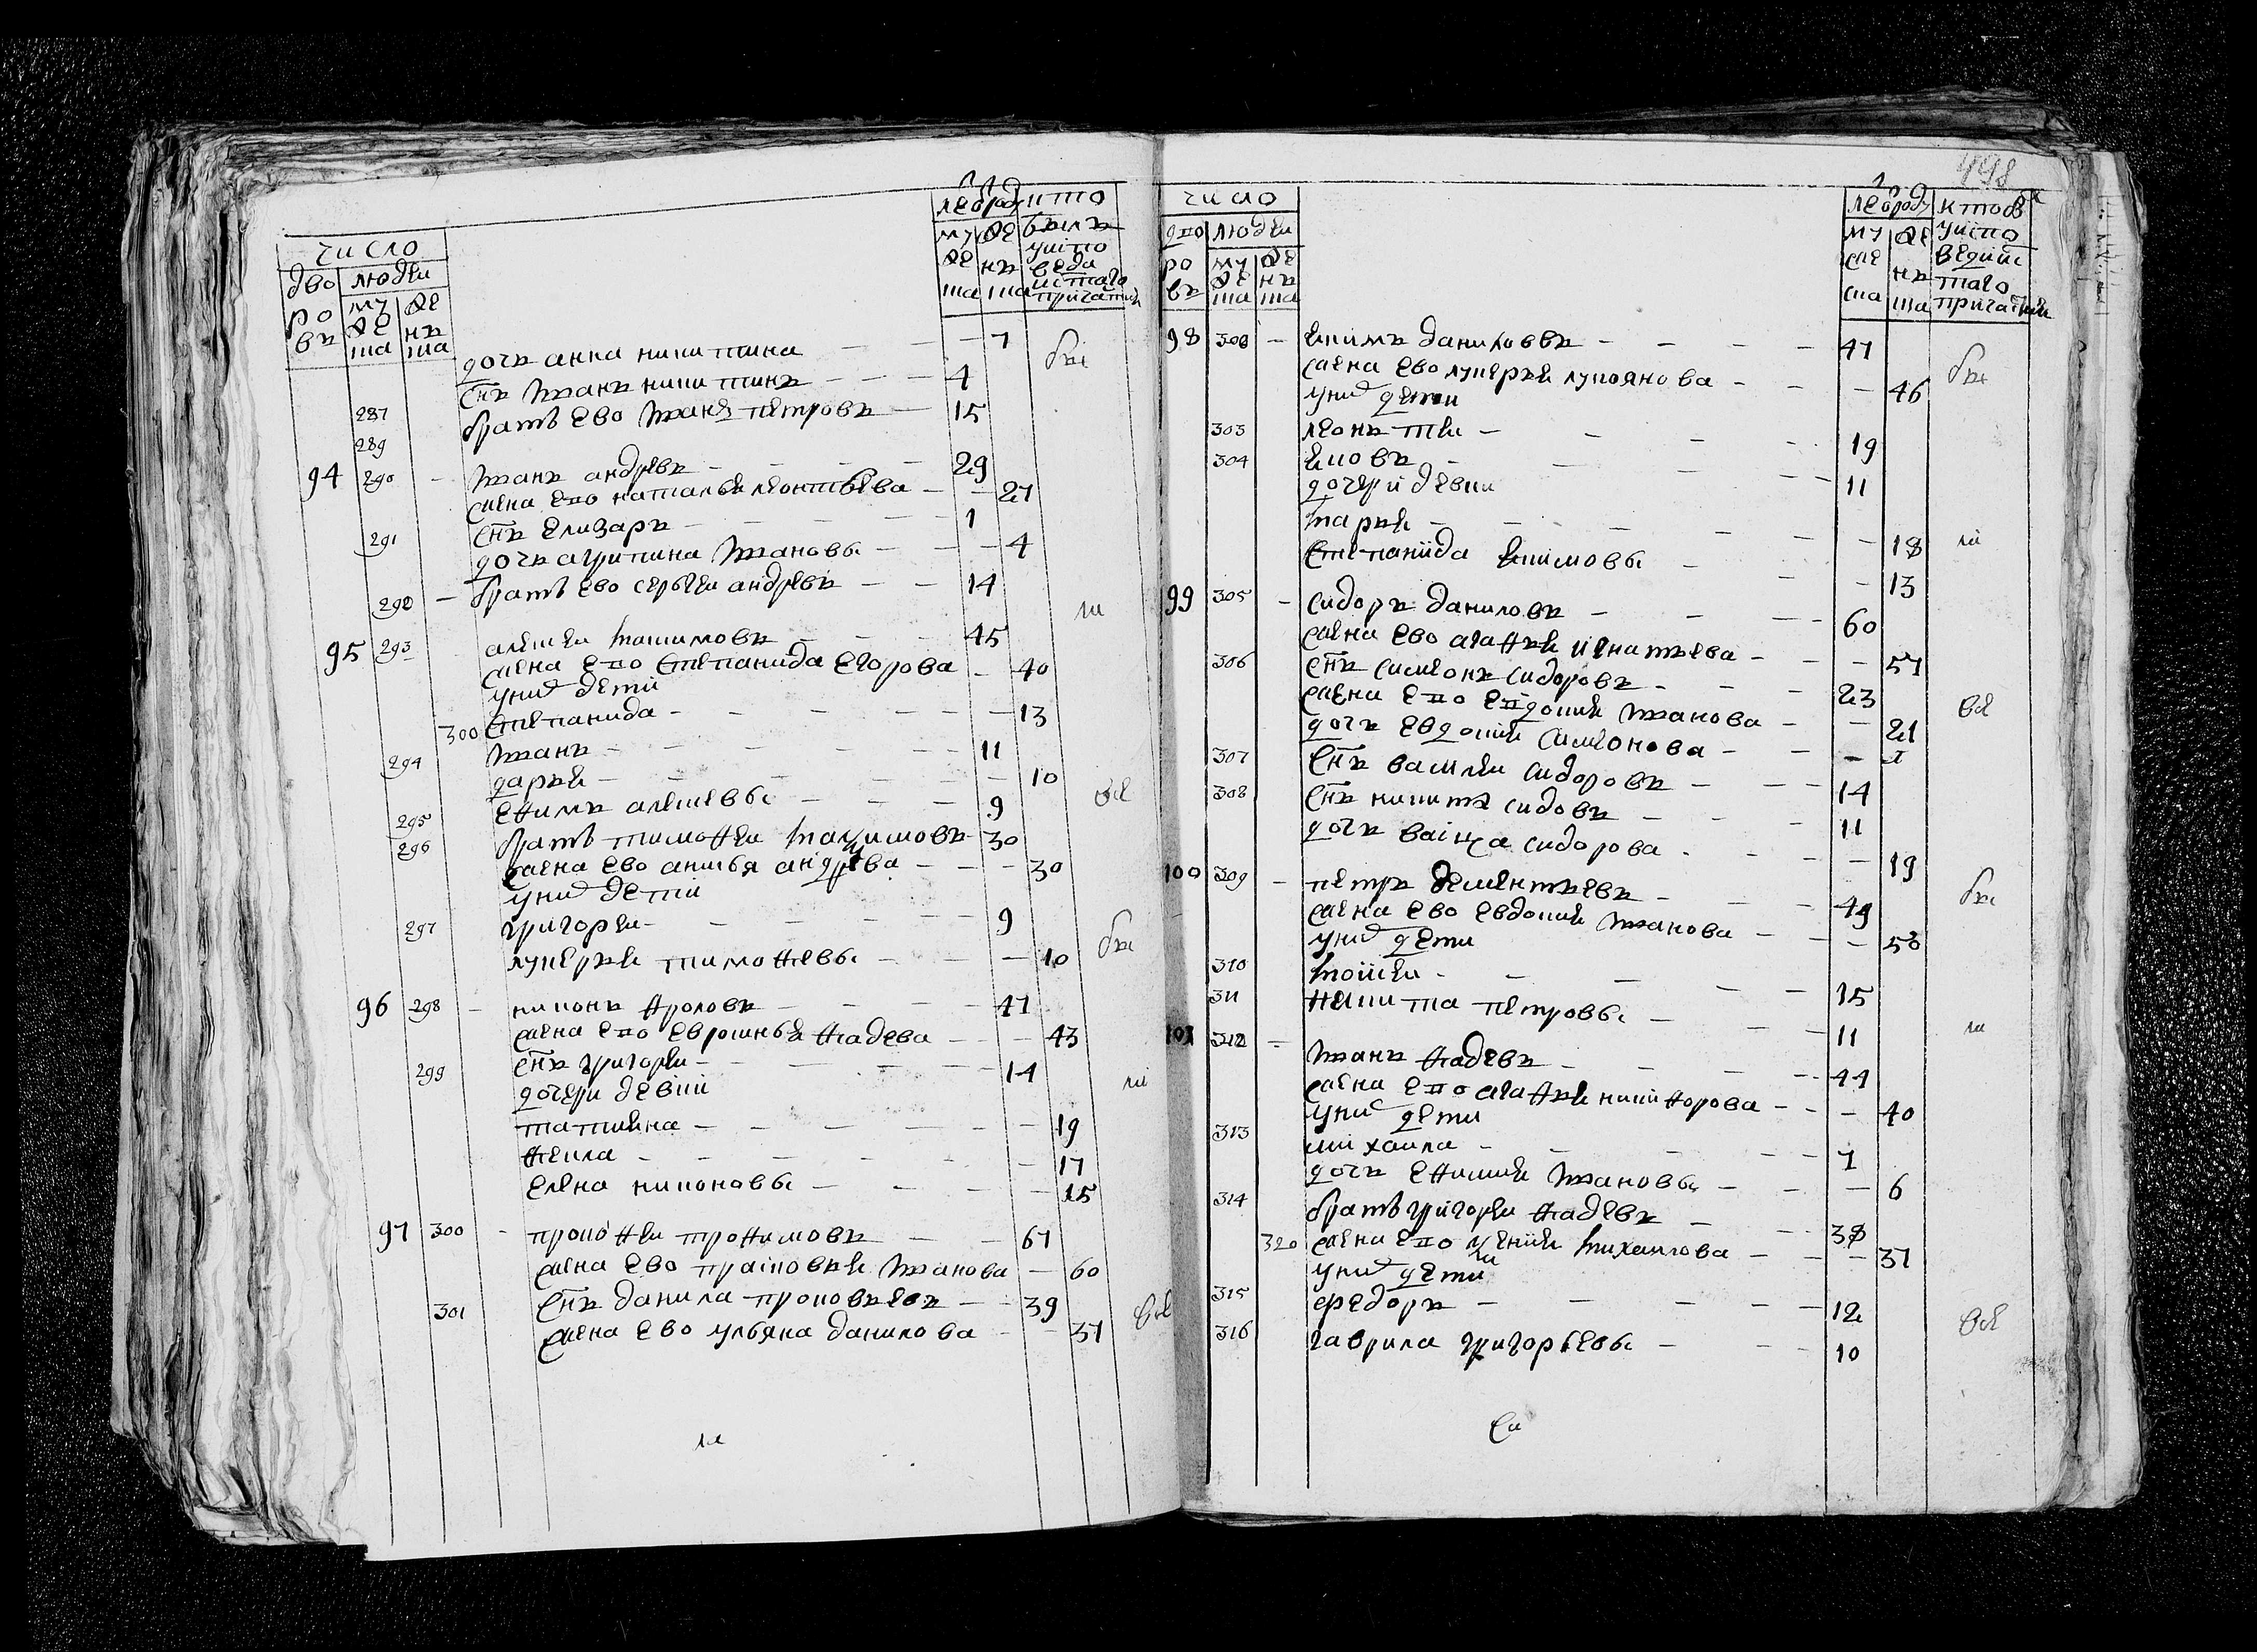 число
дво людеи
ро му же
въ же нъ
ша ша
лео роду кто
му же былъ
же нъ у испо
ша ша веди
и стаго
причастия
дочь анна никитина — — — 7
287 снъ иванъ никитинъ — — — 4
289 братъ ево иванъ петровъ — 15
94 290 — иванъ андревъ — — — — 29
жена ево наталья леонтьева — — 27
291 снъ елизаръ — — — — 1
дочь агрипина ивановы — — — 4
292 — братъ ево сергеи андревъ — — 14
95 293 алексеи максимовъ — — — 45
жена ево степанида егорова — 40
у них дети
300 степанида — — — — — 13
294 иванъ — — — — — 11
дарья — — — — — 10
295 ефимъ алексевы — — — 9
296 братъ тимофеи максимовъ — 30
жена ево анисья андрева — — — 30
у них дети
297 григореи — — — — — 9
лукерья тимофевы — — — 10
96 298 — никонъ фроловъ — — — — 47
жена ево евросинья фадева — — 43
299 снъ григореи — — — — 14
дочери девки
татияна — — — — — — 19
фекла — — — — — — 17
елена никоновы — — — — 15
97 300 — прокофеи трофимовъ — — 67
жена ево прасковья иванова — 60
301 снъ данила прокофьевъ — — 39
жена ево ульяна данилова — — 37
498
число
дво людеи
ро му же
въ же нъ
ша ша
лео роду кто в
му же у испо
же нъ ведии с
ша ша таго
причастии
98 308 — екимъ даниловъ — — — — 47
жена ево лукерья лукоянова — — — 46
у них дети
303 леонътеи — — — — 19
304 яковъ — — — — 11
дочери девки
марья — — — — — 18
степанида екимовы — — — 13
99 305 — сидоръ даниловъ — — — 60
жена ево агафья игнатьева — — — 57
306 снъ симионъ сидоровъ — — — 23
жена ево евдокия иванова — — 21
дочь евдокия симионова — — —
307 снъ василеи сидоровъ — — — 14
308 снъ никита сидовъ — — — 11
дочь васиса сидорова — — — 19
100 309 — петръ дементьевъ — — — 49
жена ево евдокия иванова — — 58
у них дети
310 мосеи — — — — — 15
311 никита петровы — — — 11
101 312 — иванъ фадевъ — — — — 44
жена ево агафья никифорова — — — 40
у них дети
313 михаила — — — — 7
дочь ефимия ивановы — — — 6
314 братъ григореи фадевъ — — 38
320 жена ево ксения михаилова — — — 37
у них дети
315 федоръ — — — — 12
316 гаврила григорьевы — — — 10